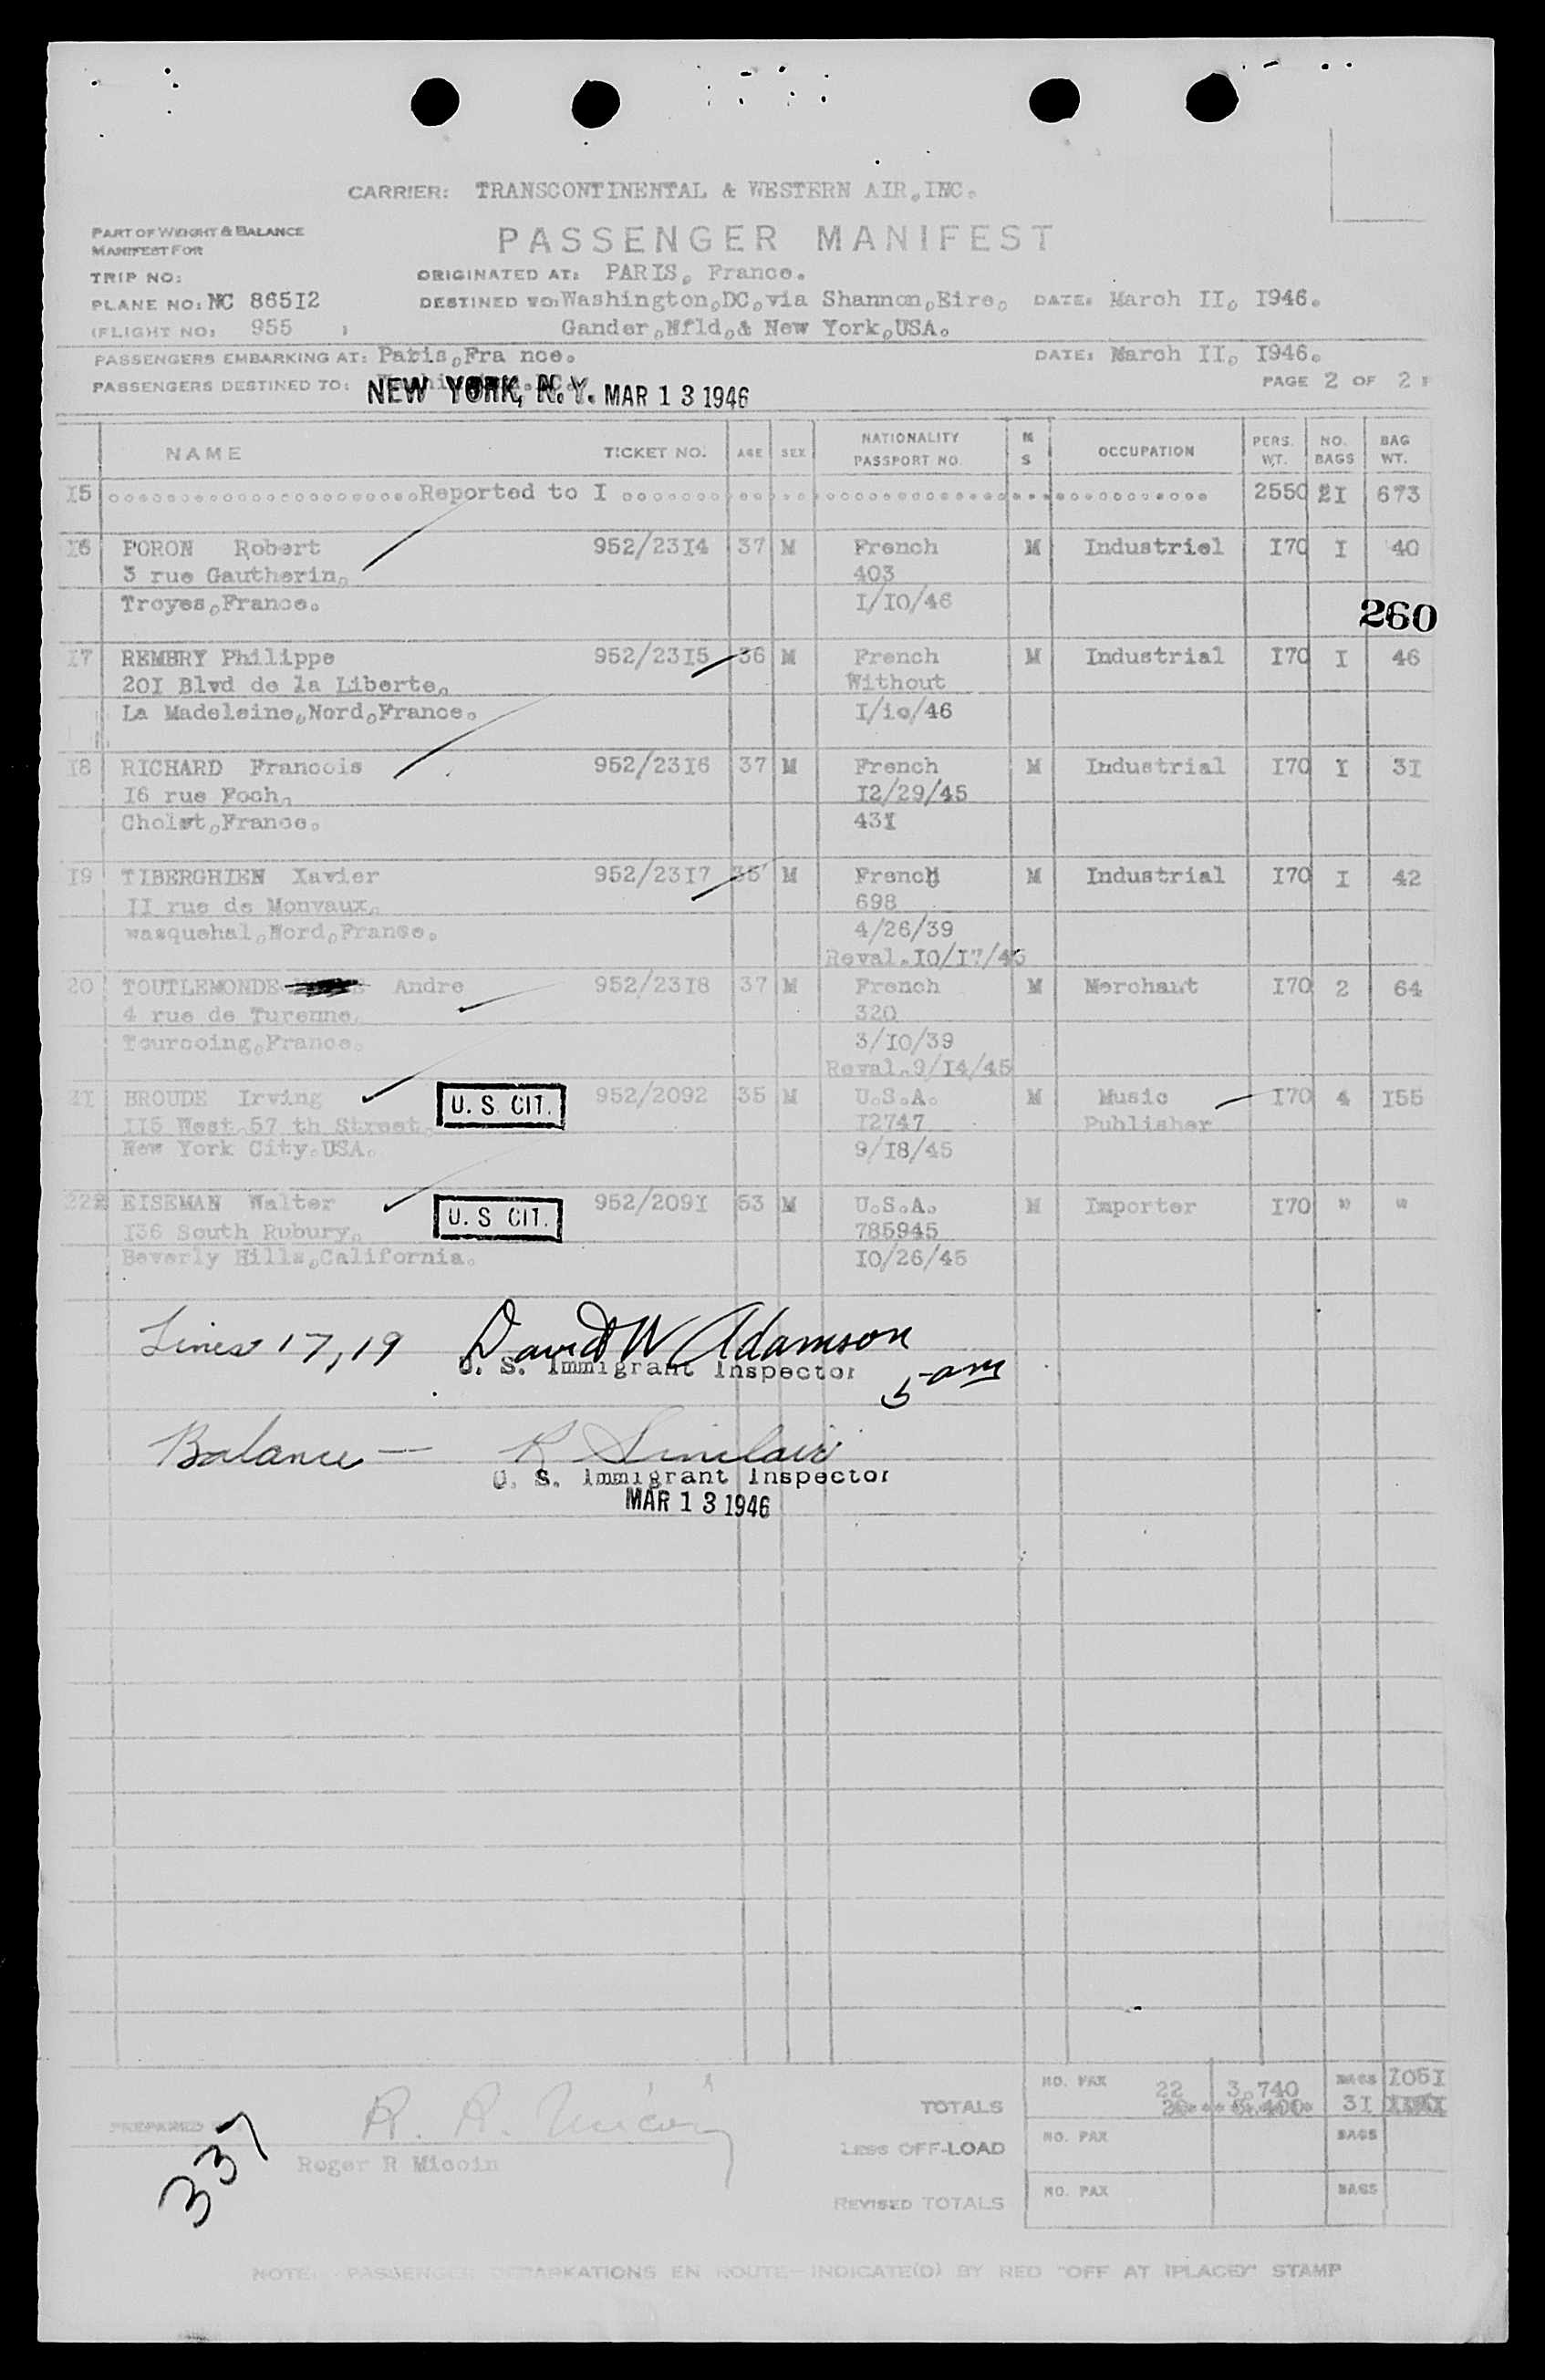 CARRIER: TRANSCONTINENTAL & WESTERN AIR,INC.
PART OF WEIGHT & BALANCE
MANIFEST FOR
PASSENGER MANIFEST
TRIP NO:
ORIGINATED AT: PARIS, France.
PLANE NO: NC 86512
DESTINED TO: Washington,DC,via Shannon,Eire, DATE: March II, 1946.
(FLIGHT NO: 955 )
Gander,Nfld,& New York,USA.
PASSENGERS EMBARKING AT: Paris,Fra nce. DATE: March II, 1946.
PASSENGERS DESTINED TO: NEW YORK, N.Y. MAR 13 1946 PAGE 2 OF 2
NAME TICKET NO. AGE SEX NATIONALITY PASSPORT NO. M S OCCUPATION PERS. WT. NO. BAGS BAG WT.
15 Reported to I 2550 21 673
16 PORON Robert 952/2314 37 M French M Industriel 170 I 40
3 rue Gautherin, 403
Troyes,France. I/10/46
260
17 REMBRY Philippe 952/2315 36 M French M Industrial 170 I 46
201 Blvd de la Liberte, Without
La Madeleine,Nord,France. I/io/46
18 RICHARD Francois 952/2316 37 M French M Industrial 170 I 31
16 rue Foch, 12/29/45
Cholet,France. 431
19 TIBERGHIEN Xavier 952/2317 35 M French M Industrial 170 I 42
II rue de Monvaux, 698
wasquehal,Nord,France. 4/26/39
Reval.10/17/45
20 TOUTLEMONDE Andre 952/2318 37 M French M Merchant 170 2 64
4 rue de Turenne, 320
Tourcoing,France. 3/10/39
Reval.9/14/45
21 BROUDE Irving U. S. CIT. 952/2092 35 M U.S.A. M Music 170 4 155
115 West 57 th Street, 12747 Publisher
New York City.USA. 9/18/45
22 EISEMAN Walter U. S CIT. 952/2091 53 M U.S.A. M Importer 170 " "
136 South Rubury, 785945
Beverly Hills,California. 10/26/45
Lines 17, 19 David W Adamson
U. S. Immigrant Inspector
5 am
Balance — R Sinclair
U. S. Immigrant Inspector
MAR 13 1946
TOTALS NO. PAX 22 3,740 BAGS 31 1051
PREPARED
R. R. Micoin
Roger R Micoin
LESS OFF-LOAD NO. PAX BAGS
REVISED TOTALS NO. PAX BAGS
337
NOTE: PASSENGER DEBARKATIONS EN ROUTE—INDICATE(D) BY RED "OFF AT (PLACE)" STAMP